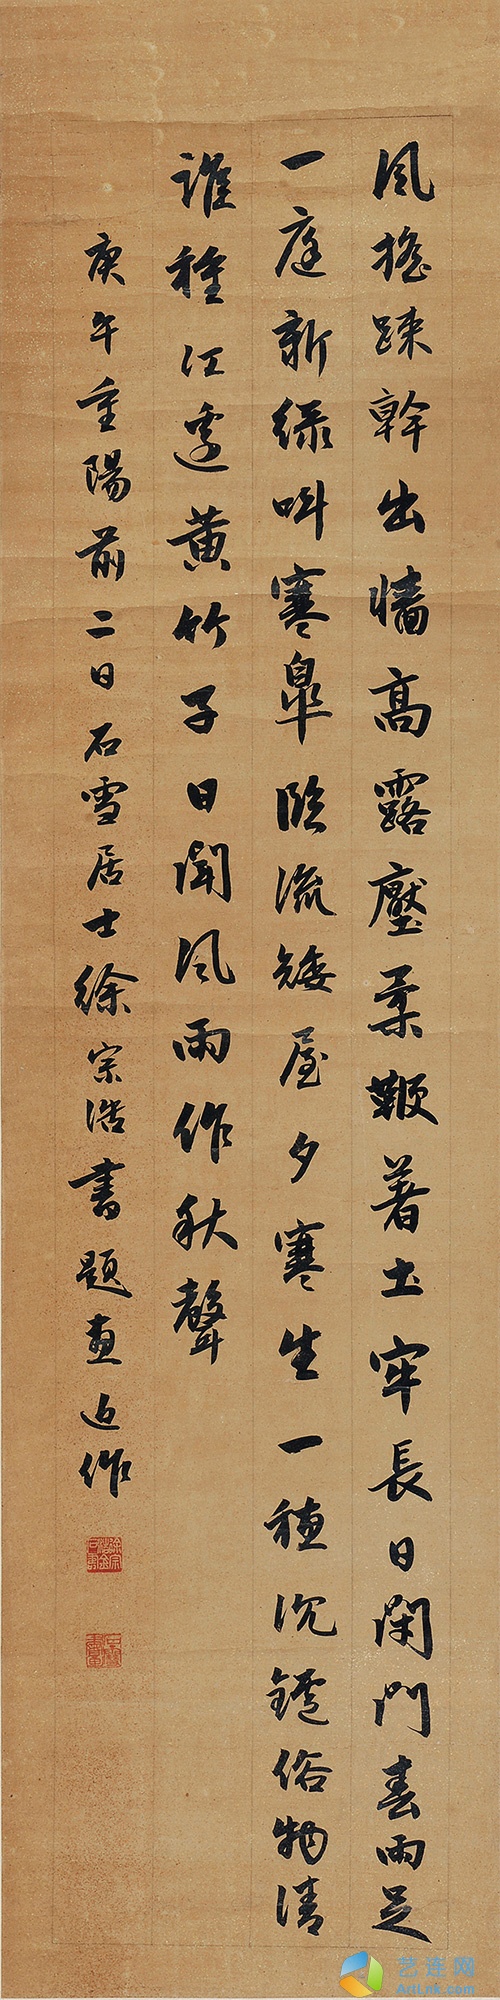 風搖疎幹出墻高露壓柔鞭著土牢長日閑門春雨足
一庭新綠叫寒皐臨流矮屋夕寒生一穗沉鑪俗物清
誰種江邊黃竹子日聞風雨作秋聲
庚午重陽前二日石雪居士徐宗浩書題畫近作
艺连网
ArtLnk.com